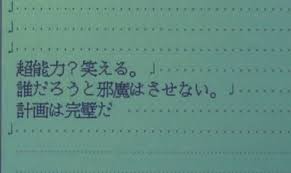 超能力？笑える。
誰だろうと邪魔はさせない。
計画は完璧だ